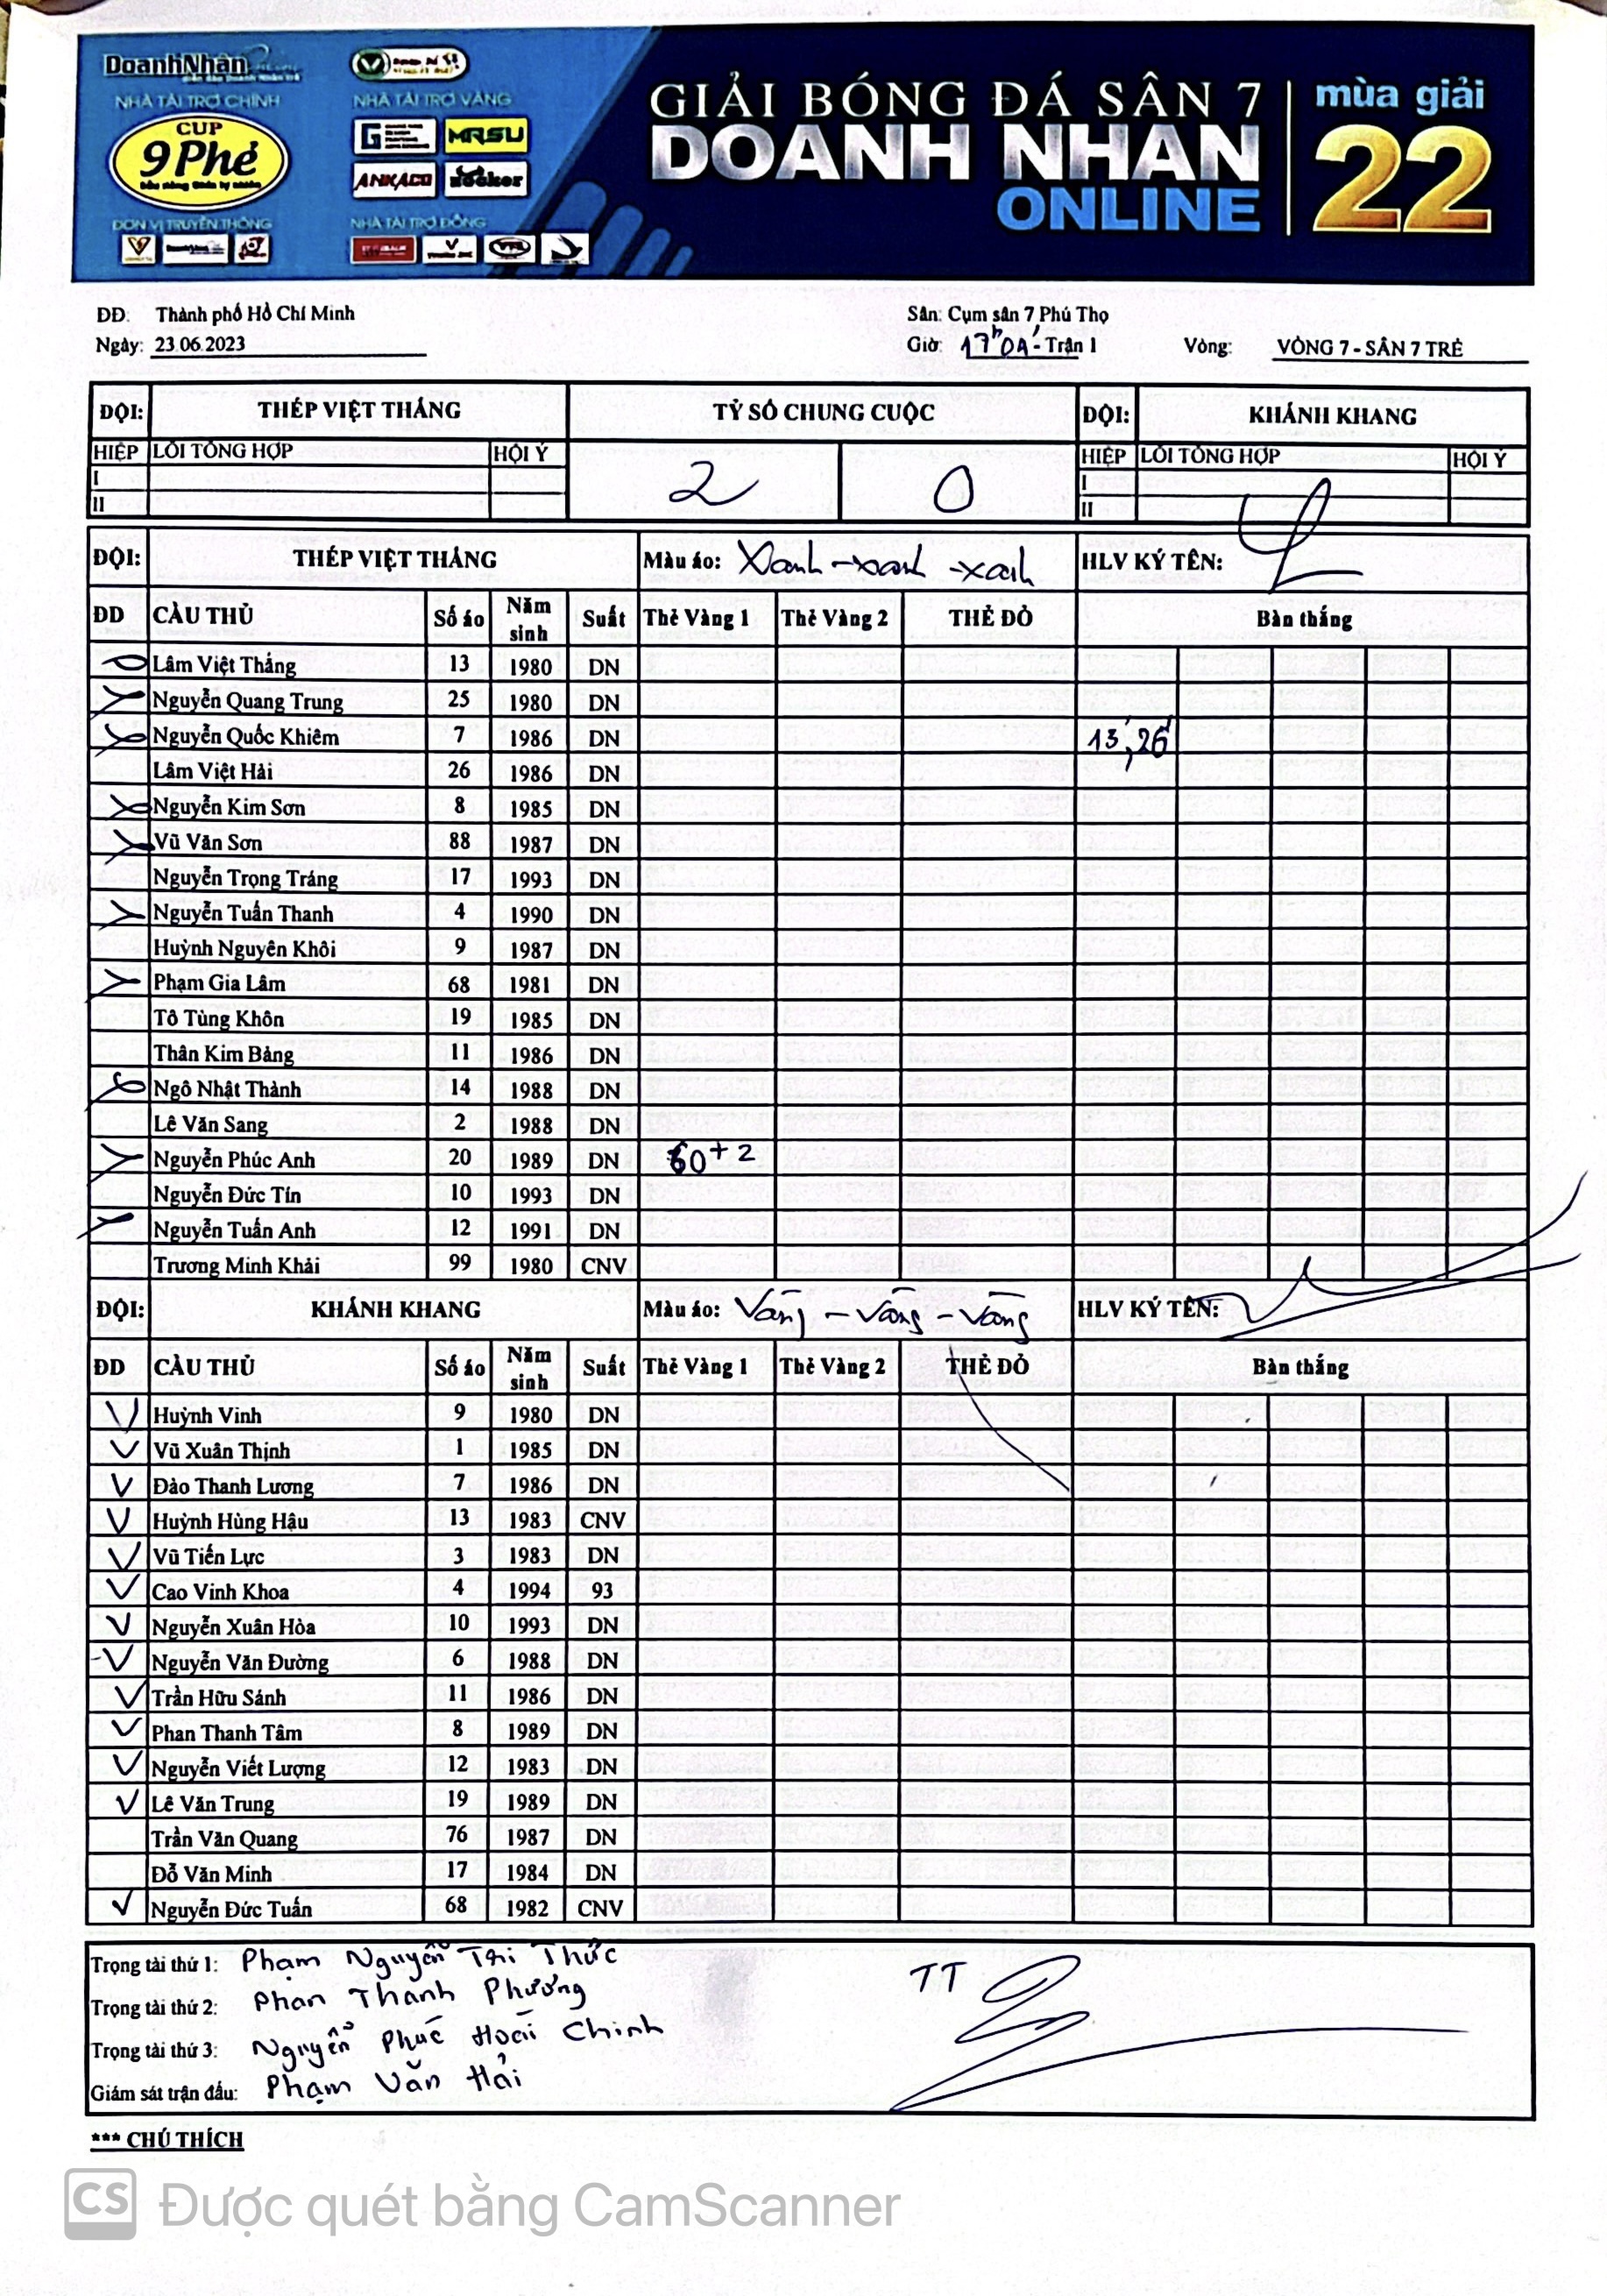 DoanhNhân
NHÀ TÀI TRỢ CHÍNH
NHÀ TÀI TRỢ VÀNG
CUP
9 Phẻ
MRSU
ANKACO
ĐƠN VỊ TRUYỀN THÔNG
NHÀ TÀI TRỢ ĐỒNG
GIẢI BÓNG ĐÁ SÂN 7
DOANH NHÂN
ONLINE
mùa giải
22
ĐĐ: Thành phố Hồ Chí Minh
Sân: Cụm sân 7 Phú Thọ
Ngày: 23.06.2023
Giờ: - Trận 1
Vòng: VÒNG 7 - SÂN 7 TRẺ
ĐỘI: THÉP VIỆT THẮNG TỶ SỐ CHUNG CUỘC ĐỘI: KHÁNH KHANG
HIỆP LỖI TỔNG HỢP HỘI Ý 2 0 HIỆP LỖI TỔNG HỢP HỘI Ý
I I
II II
ĐỘI: THÉP VIỆT THẮNG Màu áo: Xanh - xanh - xanh HLV KÝ TÊN:
ĐD CẦU THỦ Số áo Năm sinh Suất Thẻ Vàng 1 Thẻ Vàng 2 THẺ ĐỎ Bàn thắng
Lâm Việt Thắng 13 1980 DN
Nguyễn Quang Trung 25 1980 DN
Nguyễn Quốc Khiêm 7 1986 DN 13', 26'
Lâm Việt Hải 26 1986 DN
Nguyễn Kim Sơn 8 1985 DN
Vũ Văn Sơn 88 1987 DN
Nguyễn Trọng Tráng 17 1993 DN
Nguyễn Tuấn Thanh 4 1990 DN
Huỳnh Nguyên Khôi 9 1987 DN
Phạm Gia Lâm 68 1981 DN
Tô Tùng Khôn 19 1985 DN
Thân Kim Bảng 11 1986 DN
Ngô Nhật Thành 14 1988 DN
Lê Văn Sang 2 1988 DN
Nguyễn Phúc Anh 20 1989 DN 60+2
Nguyễn Đức Tín 10 1993 DN
Nguyễn Tuấn Anh 12 1991 DN
Trương Minh Khải 99 1980 CNV
ĐỘI: KHÁNH KHANG Màu áo: Vàng - Vàng - Vàng HLV KÝ TÊN:
ĐD CẦU THỦ Số áo Năm sinh Suất Thẻ Vàng 1 Thẻ Vàng 2 THẺ ĐỎ Bàn thắng
Huỳnh Vinh 9 1980 DN
Vũ Xuân Thịnh 1 1985 DN
Đào Thanh Lương 7 1986 DN
Huỳnh Hùng Hậu 13 1983 CNV
Vũ Tiến Lực 3 1983 DN
Cao Vinh Khoa 4 1994 93
Nguyễn Xuân Hòa 10 1993 DN
Nguyễn Văn Đường 6 1988 DN
Trần Hữu Sánh 11 1986 DN
Phan Thanh Tâm 8 1989 DN
Nguyễn Viết Lượng 12 1983 DN
Lê Văn Trung 19 1989 DN
Trần Văn Quang 76 1987 DN
Đỗ Văn Minh 17 1984 DN
Nguyễn Đức Tuấn 68 1982 CNV
Trọng tài thứ 1: Phạm Nguyễn Tri Thức
TT
Trọng tài thứ 2: Phan Thanh Phương
Trọng tài thứ 3: Nguyễn Phúc Hoài Chinh
Giám sát trận đấu: Phạm Văn Hải
*** CHÚ THÍCH
CS Được quét bằng CamScanner